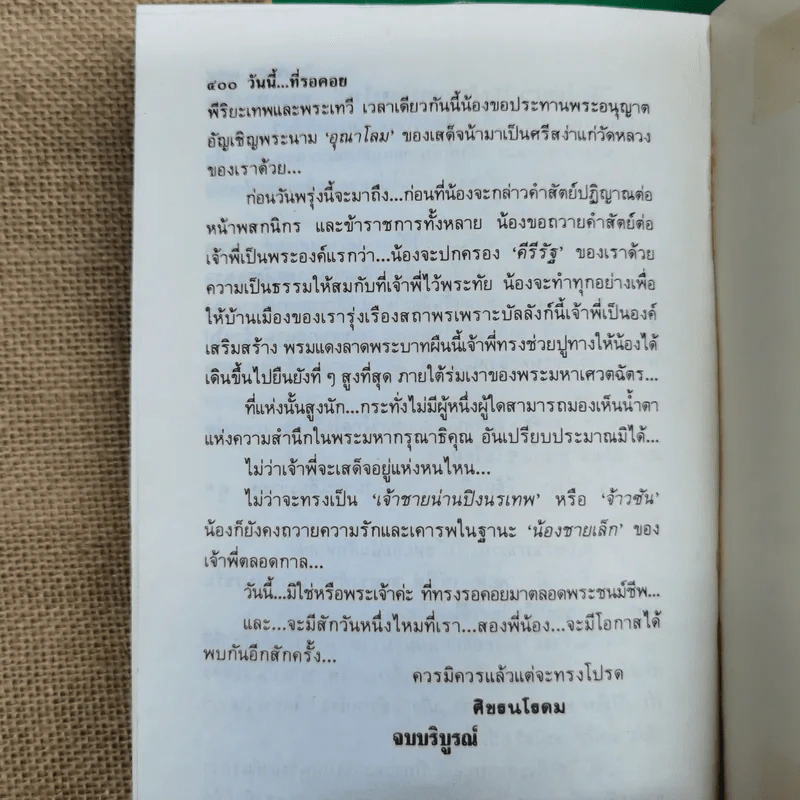 ๔๐๐ วันนี้...ที่รอคอย
พีริยะเทพและพระเทวี เวลาเดียวกันนี้น้องขอประทานพระอนุญาต
อัญเชิญพระนาม ‘อุณาโลม’ ของเสด็จน้ามาเป็นศรีสง่าแก่วัดหลวง
ของเราด้วย...
ก่อนวันพรุ่งนี้จะมาถึง...ก่อนที่น้องจะกล่าวคำสัตย์ปฏิญาณต่อ
หน้าพสกนิกร และข้าราชการทั้งหลาย น้องขอถวายคำสัตย์ต่อ
เจ้าพี่เป็นพระองค์แรกว่า...น้องจะปกครอง ‘คีรีรัฐ’ ของเราด้วย
ความเป็นธรรมให้สมกับที่เจ้าพี่ไว้พระทัย น้องจะทำทุกอย่างเพื่อ
ให้บ้านเมืองของเรารุ่งเรืองสถาพรเพราะบัลลังก์นี้เจ้าพี่เป็นองค์
เสริมสร้าง พรมแดงลาดพระบาทผืนนี้เจ้าพี่ทรงช่วยปูทางให้น้องได้
เดินขึ้นไปยืนยังที่ ๆ สูงที่สุด ภายใต้ร่มเงาของพระมหาเศวตฉัตร...
ที่แห่งนั้นสูงนัก...กระทั่งไม่มีผู้หนึ่งผู้ใดสามารถมองเห็นน้ำตา
แห่งความสำนึกในพระมหากรุณาธิคุณ อันเปรียบประมาณมิได้...
ไม่ว่าเจ้าพี่จะเสด็จอยู่แห่งหนไหน...
ไม่ว่าจะทรงเป็น ‘เจ้าชายน่านปิงนรเทพ’ หรือ ‘จ้าวซัน’
น้องก็ยังคงถวายความรักและเคารพในฐานะ ‘น้องชายเล็ก’ ของ
เจ้าพี่ตลอดกาล...
วันนี้...มิใช่หรือพระเจ้าค่ะ ที่ทรงรอคอยมาตลอดพระชนม์ชีพ...
และ...จะมีสักวันหนึ่งไหมที่เรา...สองพี่น้อง...จะมีโอกาสได้
พบกันอีกสักครั้ง...
ควรมิควรแล้วแต่จะทรงโปรด
ศิขรนโรดม
จบบริบูรณ์